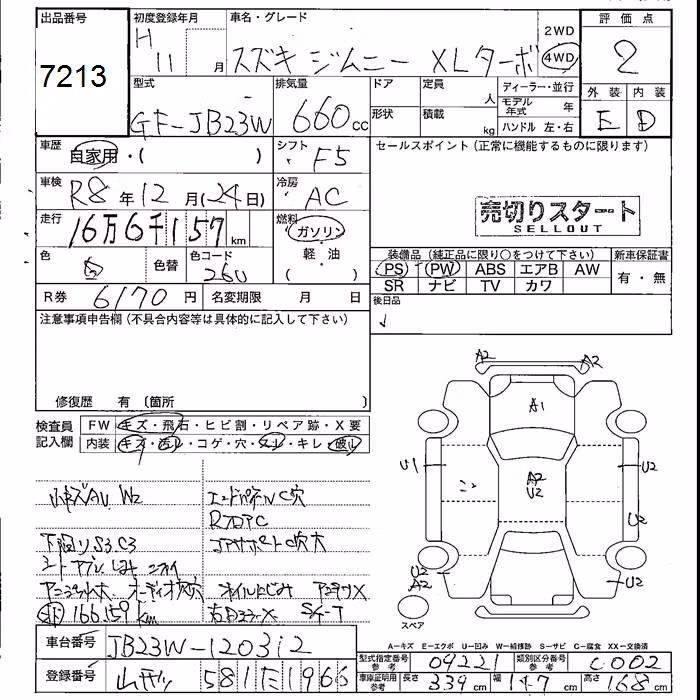 出品番号
7213
初度登録年月
H 11 月
車名・グレード
スズキ ジムニー XLターボ
2WD
4WD
評価点
2
型式
GF-JB23W
排気量
660cc
ドア
定員
人
形状
積載
kg
ディーラー・並行
モデル年式 年
ハンドル 左・右
外装 内装
E D
車歴
自家用・( )
シフト
F5
セールスポイント(正常に機能するものに限ります)
車検
R8年12月(24日)
冷房
AC
売切りスタート
SELLOUT
走行
16万6千157km
燃料
ガソリン
軽・油
( )
色
色替
色コード
260
装備品(純正品に限り○をつけて下さい)
PS PW ABS エアB AW
SR ナビ TV カワ
新車保証書
有・無
R券 6170円
名変期限 月 日
後日品
注意事項申告欄(不具合内容等は具体的に記入して下さい)
修復歴 有 〔箇所
検査員記入欄
FW キズ・飛石・ヒビ割・リペア跡・X要
内装 キズ・汚レ・コゲ・穴・スレ・キレ・破レ
小キズAU W2
エンドパネルC穴
RフロアC
下回りS3.C3
コアサポートC穴大
オーディオ穴
オイルにじみ
166.159km
A2
A2
A1
A2
U2
U1
U2
U2
U2
A2
U2
スペア
A-キズ E-エクボ U-凹み W-補修跡 S-サビ C-腐食 XX-交換済
車台番号 JB23W-120312
型式指定番号 参考 09221
類別区分番号 参考 C002
登録番号
581 た 1966
車庫証明用 参考 長さ 339cm 幅 147cm 高さ 168cm